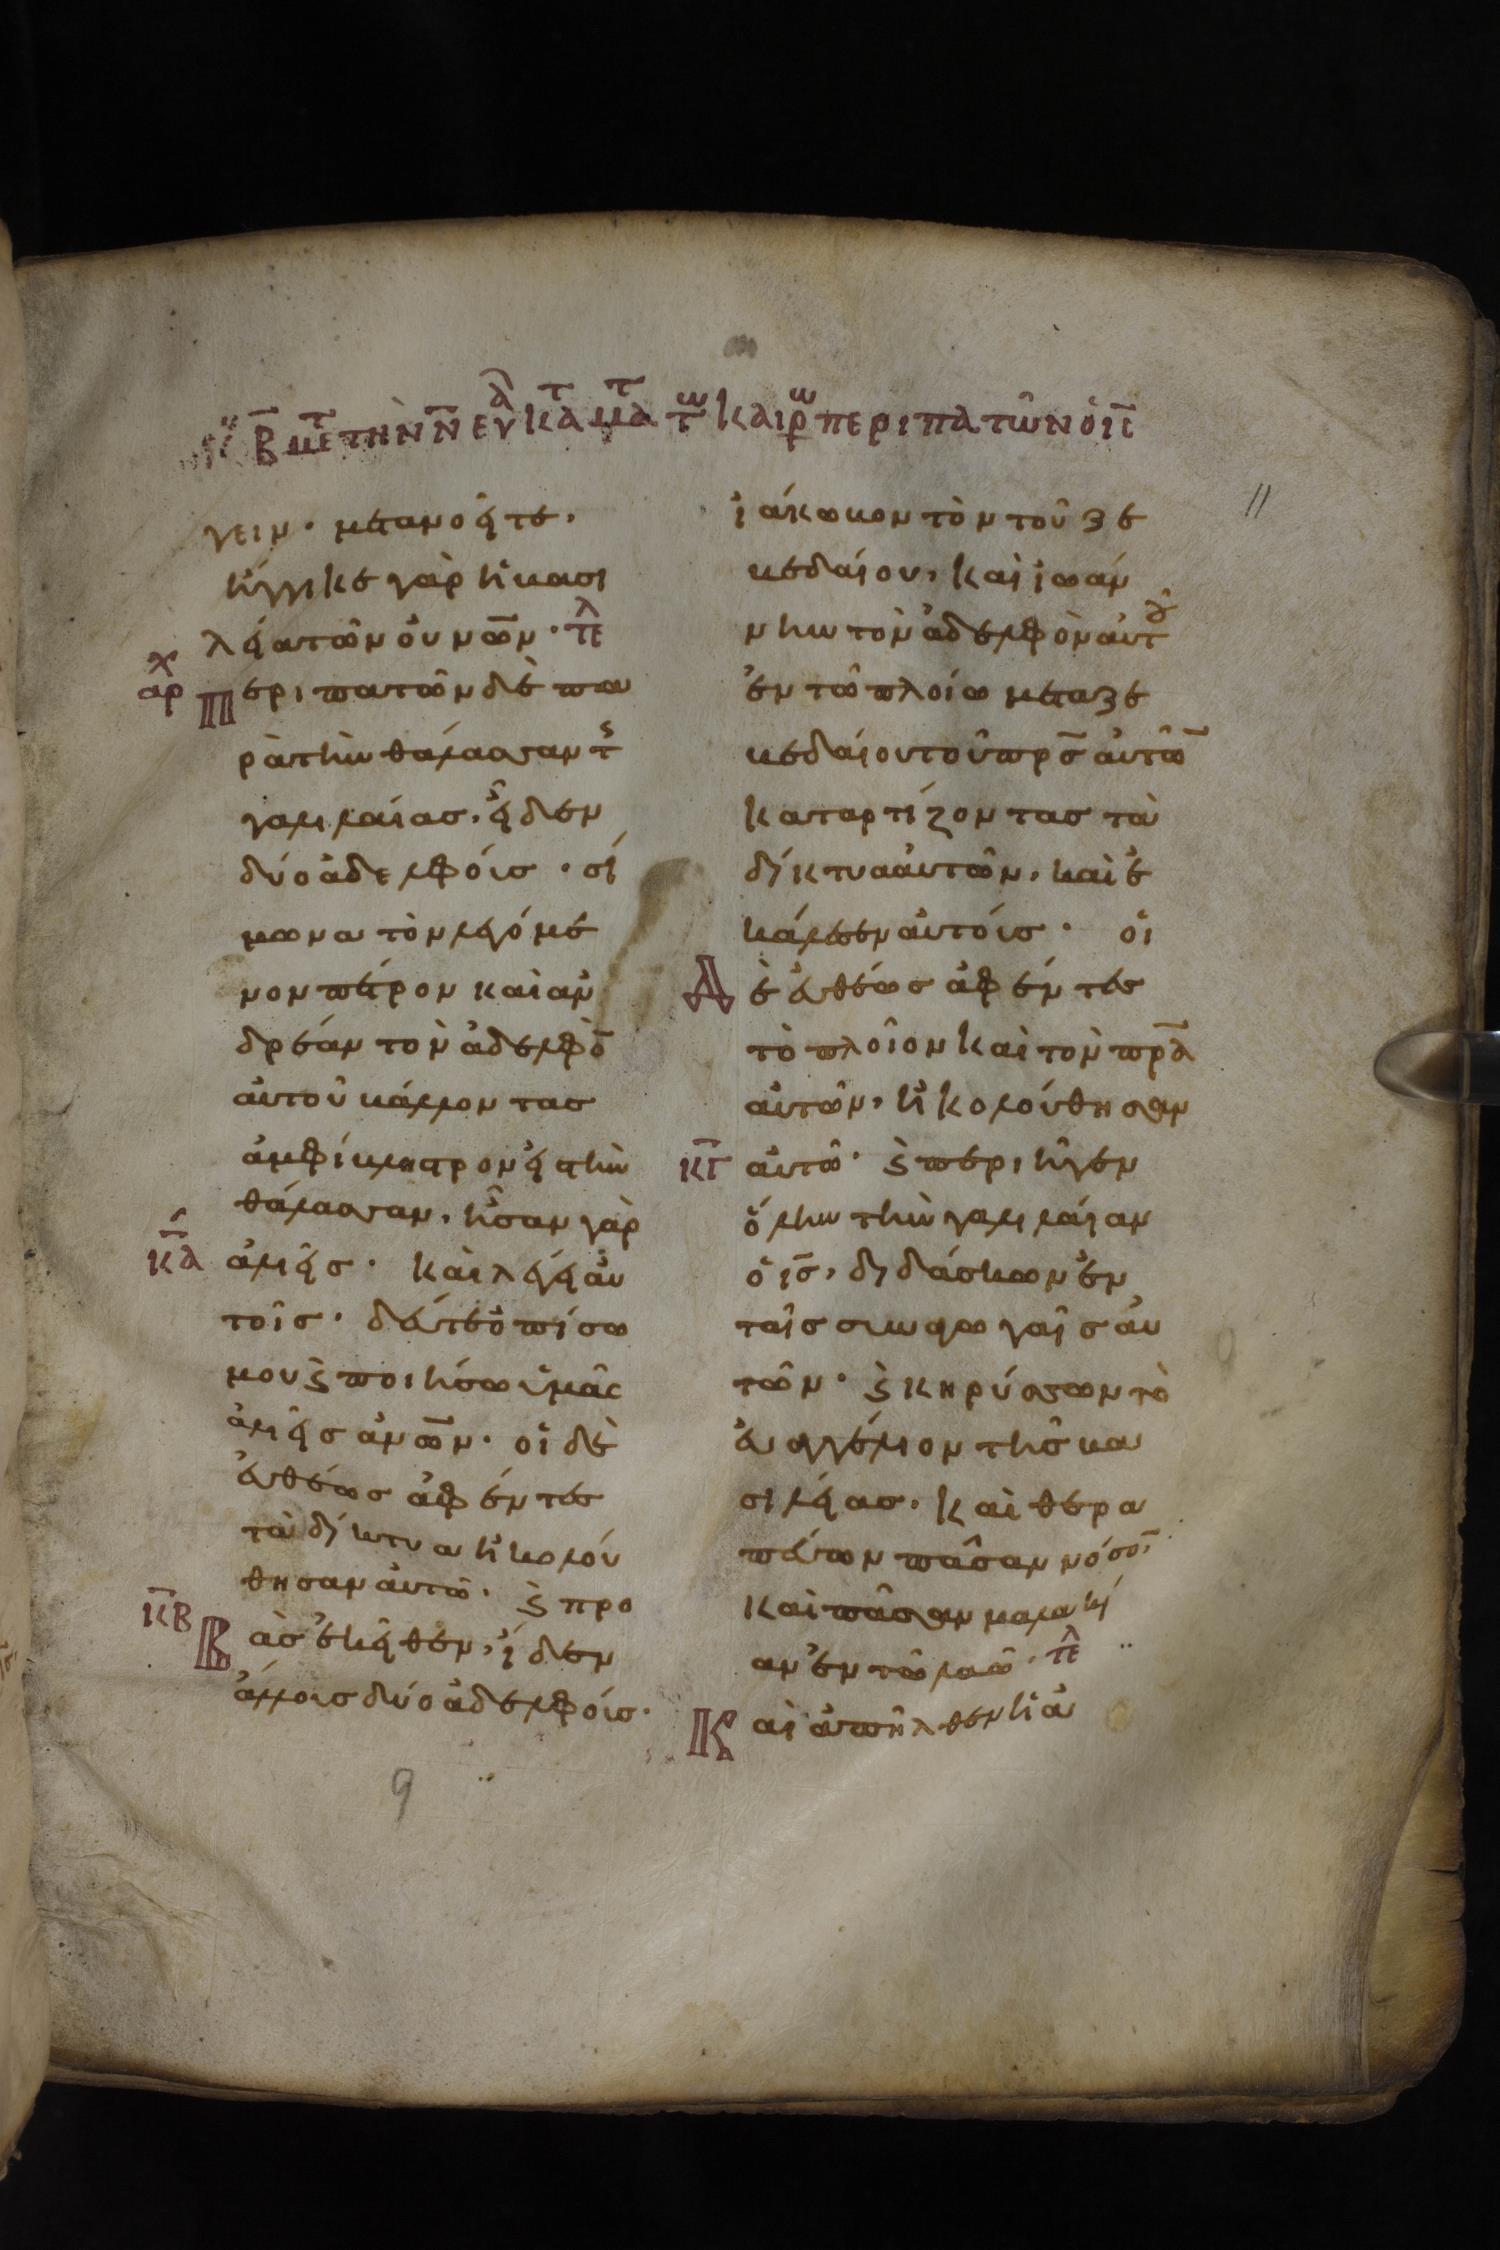 κυ β̅ μετ τὴν ν̅ ευαλ κατ ματ τω καιρω περιπατῶν ὁ ι̅ς̅
11
γειν· μετανοεῖτε·
ἤγγικε γὰρ ἡ βασι
λεία τῶν οὐνω̅ν· τελ
αρχ
Περιπατῶν δὲ πα
ρὰ τὴν θάλασσαν τῆς
γαλιλαίας, εἶδεν
δύο ἀδελφοὺς· σί
μωνα τὸν λεγόμε
νον πέτρον καὶ ἀν
δρέαν τὸν ἀδελφὸ̅
αὐτοῦ βάλλοντας
ἀμφίβληστρον εἰς τὴν
θάλασσαν, ἦσαν γὰρ
κ̅α̅
ἁλιεῖς· καὶ λέγει αὐ
τοῖς· δεῦτε ὀπίσω
μου ϗ ποιήσω ὑμᾶς
ἁλιεῖς ἀνω̅ν· οἱ δὲ
εὐθέως ἀφέντες
τὰ δίκτυα ἠκολού
θησαν αὐτῶ· ϗ προ
κ̅β̅
Βὰς ἐκεῖθεν, εἶδεν
ἄλλους δύο ἀδελφούς·
9
ἰάκωβον τὸν τοῦ ζε
βεδαίου, καὶ ἰωάν
νην τὸν ἀδελφὸν αὐτοῦ
ἐν τῶ πλοίω μετα ζε
βεδαίου τοῦ πρ̅ς αὐτῶ̅
καταρτίζοντας τὰ
δίκτυα αὐτῶν, καὶ ἐ
κάλεσεν αὐτούς· οἱ
Δὲ εὐθέως ἀφέντες
τὸ πλοῖον καὶ τὸν πρ̅α
αὐτῶν, ἠκολούθησαν
κ̅γ̅
αὐτῶ· ϗ περιῆγεν
ὅλην τὴν γαλιλαίαν
ὁ ι̅ς̅, διδάσκων ἐν
ταῖς συναγωγαῖς αὐ
τῶν· ϗ κηρύσσων τὸ
εὐαγγέλιον τῆς βα
σιλείας. καὶ θερα
πεύων πᾶσαν νόσο̅ν
καὶ πᾶσαν μαλακί
αν ἐν τῶ λαῶ· τελ
Καὶ ἀπῆλθεν ἡ ἀ